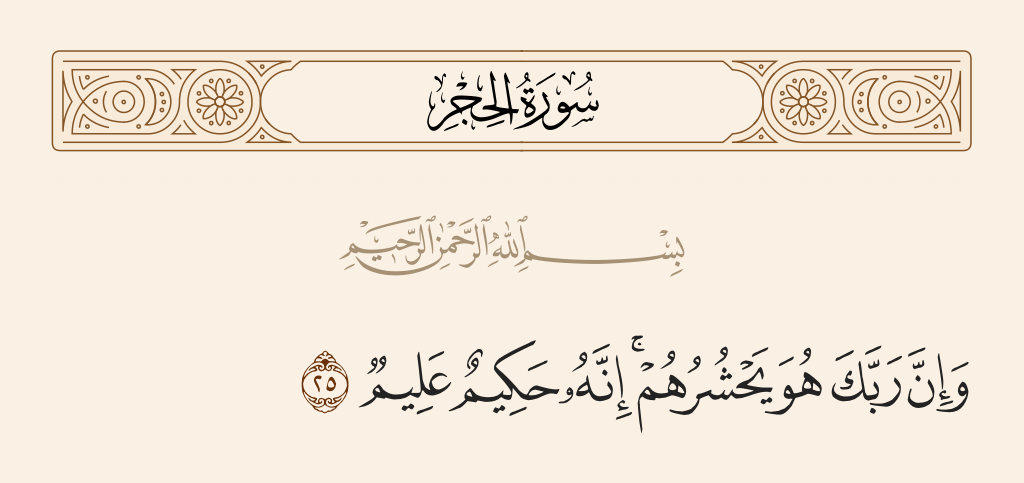 سُورَةُ الحِجْرِ
بِسْمِ ٱللَّهِ ٱلرَّحْمَٰنِ ٱلرَّحِيمِ
وَإِنَّ رَبَّكَ هُوَ يَحْشُرُهُمْۚ إِنَّهُۥ حَكِيمٌ عَلِيمٌ ٢٥